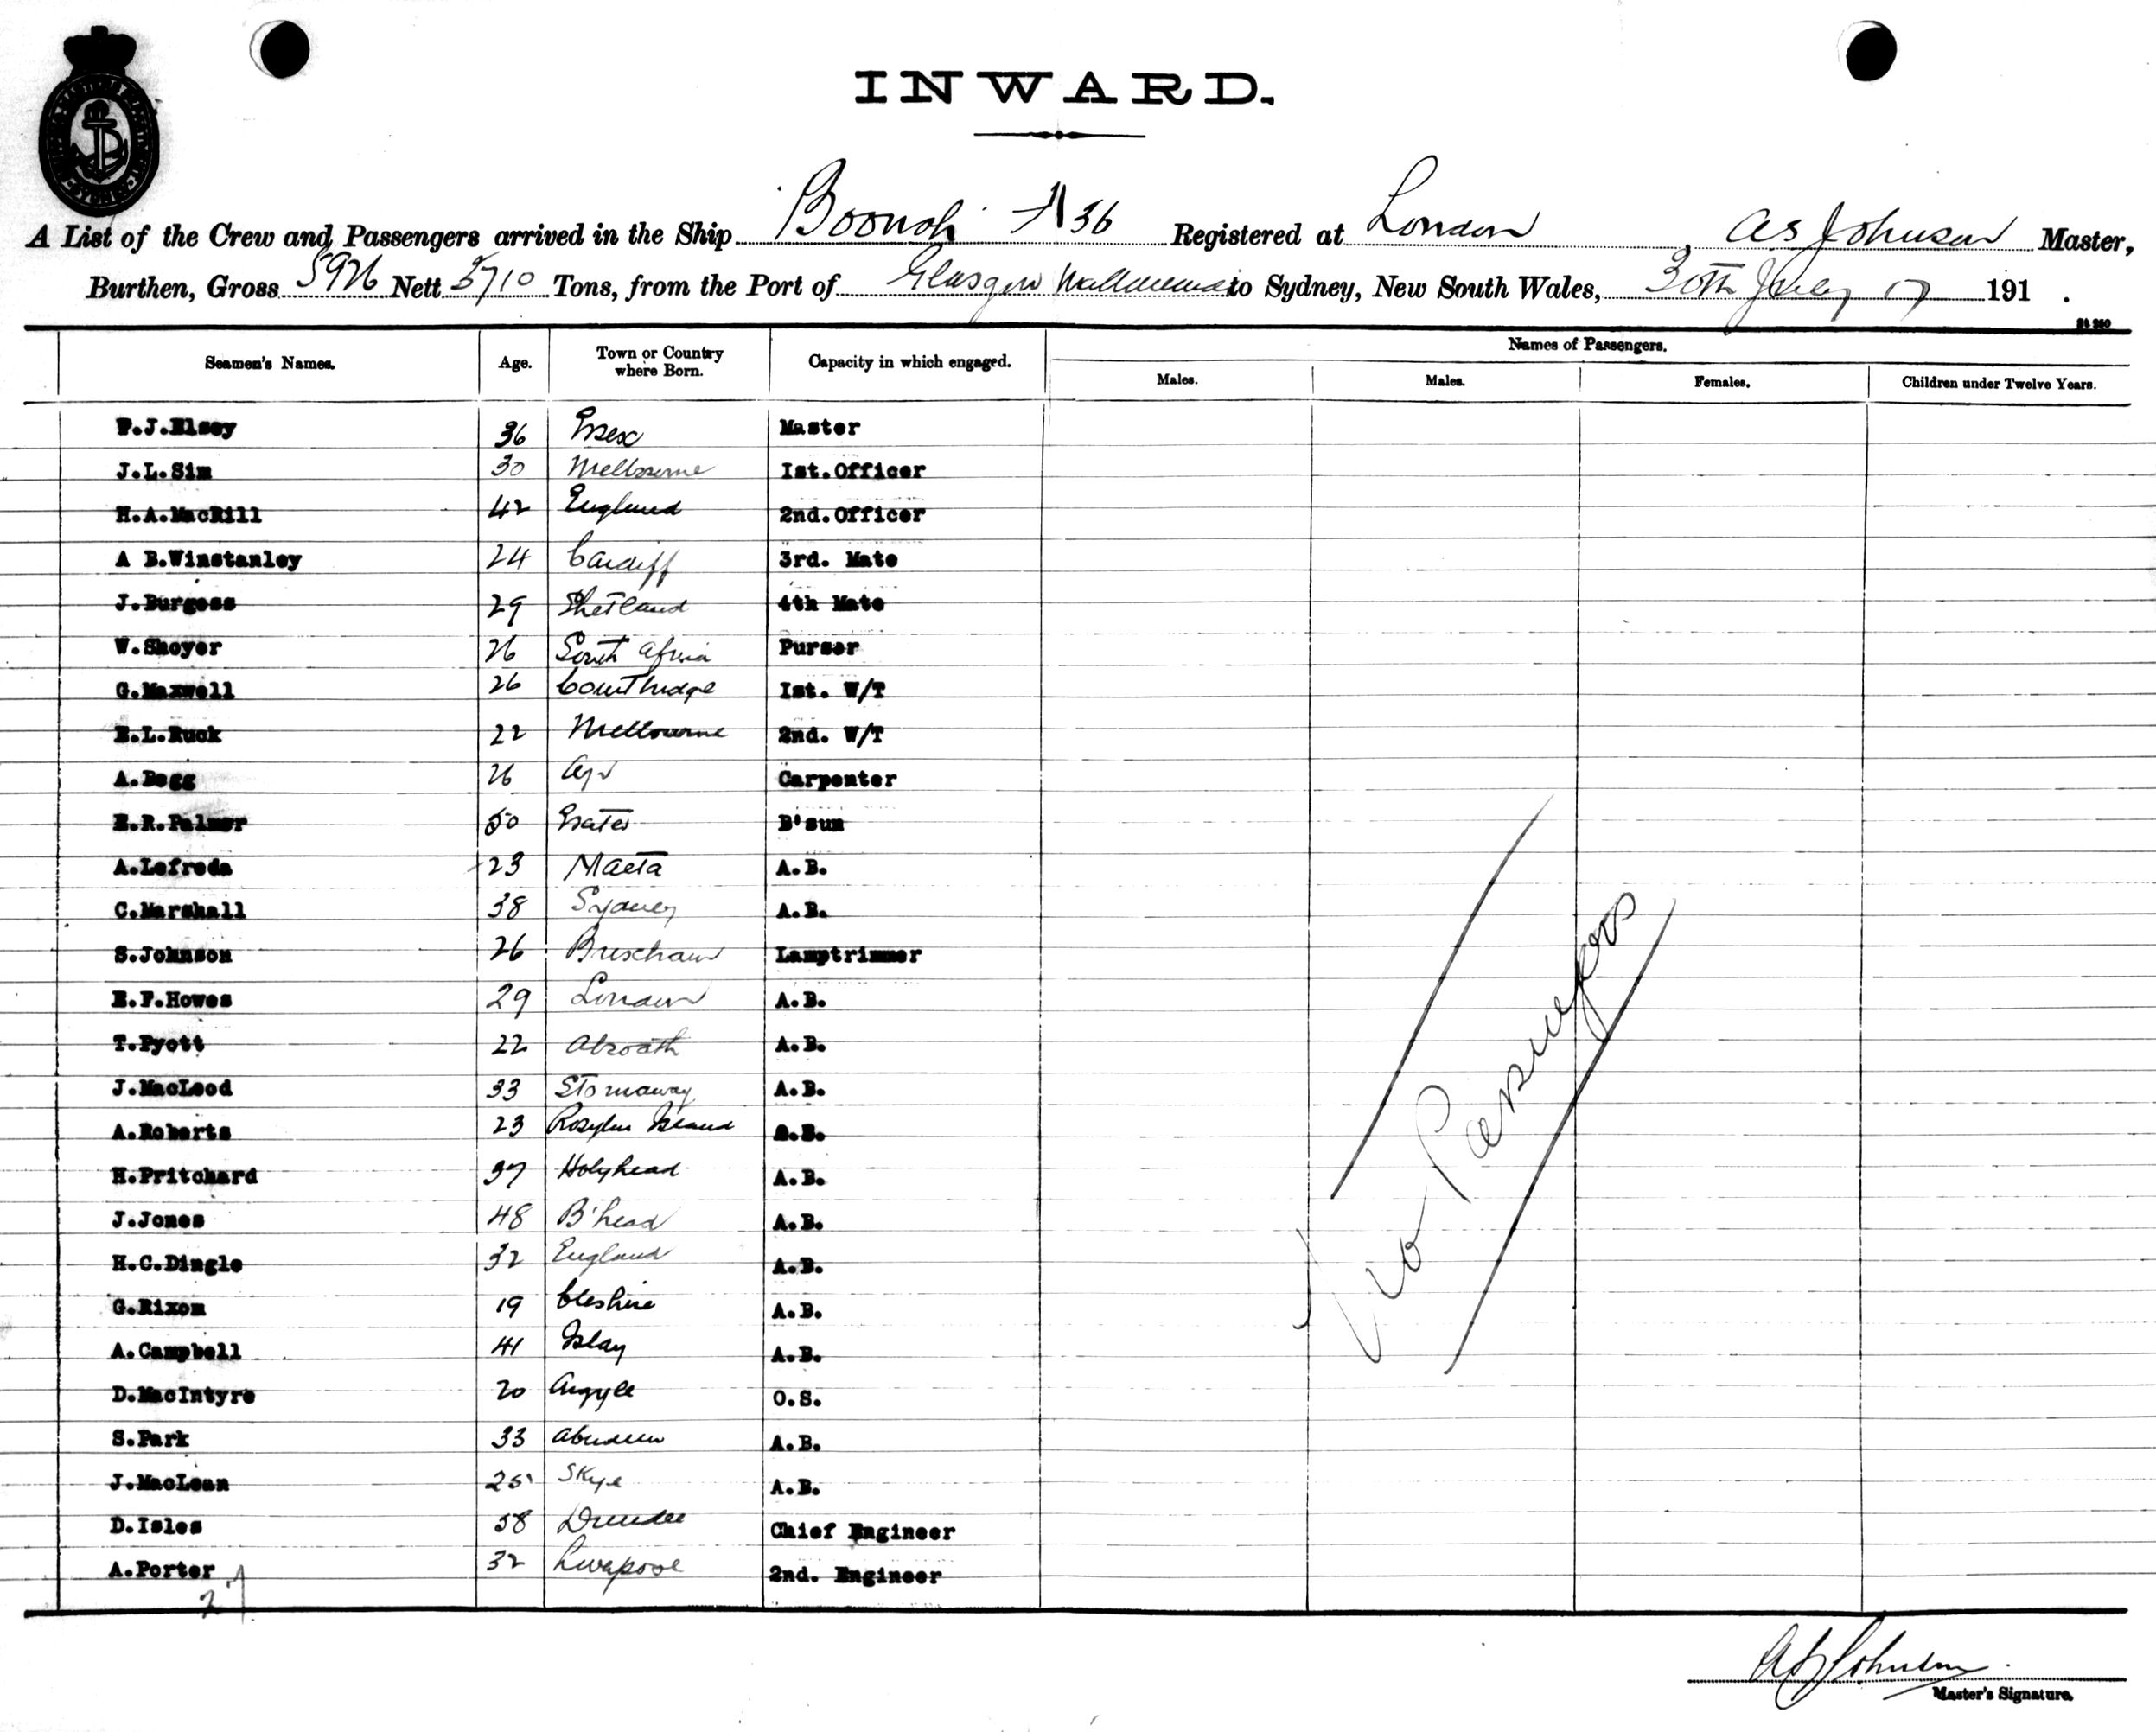 INWARD.
A List of the Crew and Passengers arrived in the Ship Boonah A 36 Registered at London, A S Johnson Master,
Burthen, Gross 5926 Nett 3710 Tons, from the Port of Glasgow to Sydney, New South Wales, 30th July 17 191 .
Seamen's Names. Age. Town or Country where Born. Capacity in which engaged. Names of Passengers.
Males. Males. Females. Children under Twelve Years.
F.J.Elsey 36 Essex Master
J.L.Sim 30 Melbourne Ist.Officer
H.A.MacRill 42 England 2nd.Officer
A B.Winstanley 24 Cardiff 3rd. Mate
J.Burgess 29 Shetland 4th Mate
W.Shoyer 26 South Africa Purser
G.Maxwell 26 Ist. W/T
E.L.Ruck 22 Melbourne 2nd. W/T
A.Begg 26 Ayr Carpenter
E.R.Palmer 50 B'sun
A.Lofreda 23 Malta A.B.
C.Marshall 38 Sydney A.B.
S.Johnson 26 Brixham Lamptrimmer
E.F.Howes 29 London A.B.
T.Pyott 22 Abroath A.B.
J.MacLeod 33 Stornaway A.B.
A.Roberts 23 Island
H.Pritchard 37 Holyhead A.B.
J.Jones 48 B'head A.B.
H.C.Dingle 32 England A.B.
G.Rixom 19 Cheshire A.B.
A.Campbell 41 Islay A.B.
D.MacIntyre 20 Argyle O.S.
S.Park 33 Aberdeen A.B.
J.MacLean 25 Skye A.B.
D.Isles 58 Dundee Chief Engineer
A.Porter 32 Liverpool 2nd. Engineer
27
No Passengers
A S Johnson
Master's Signature.